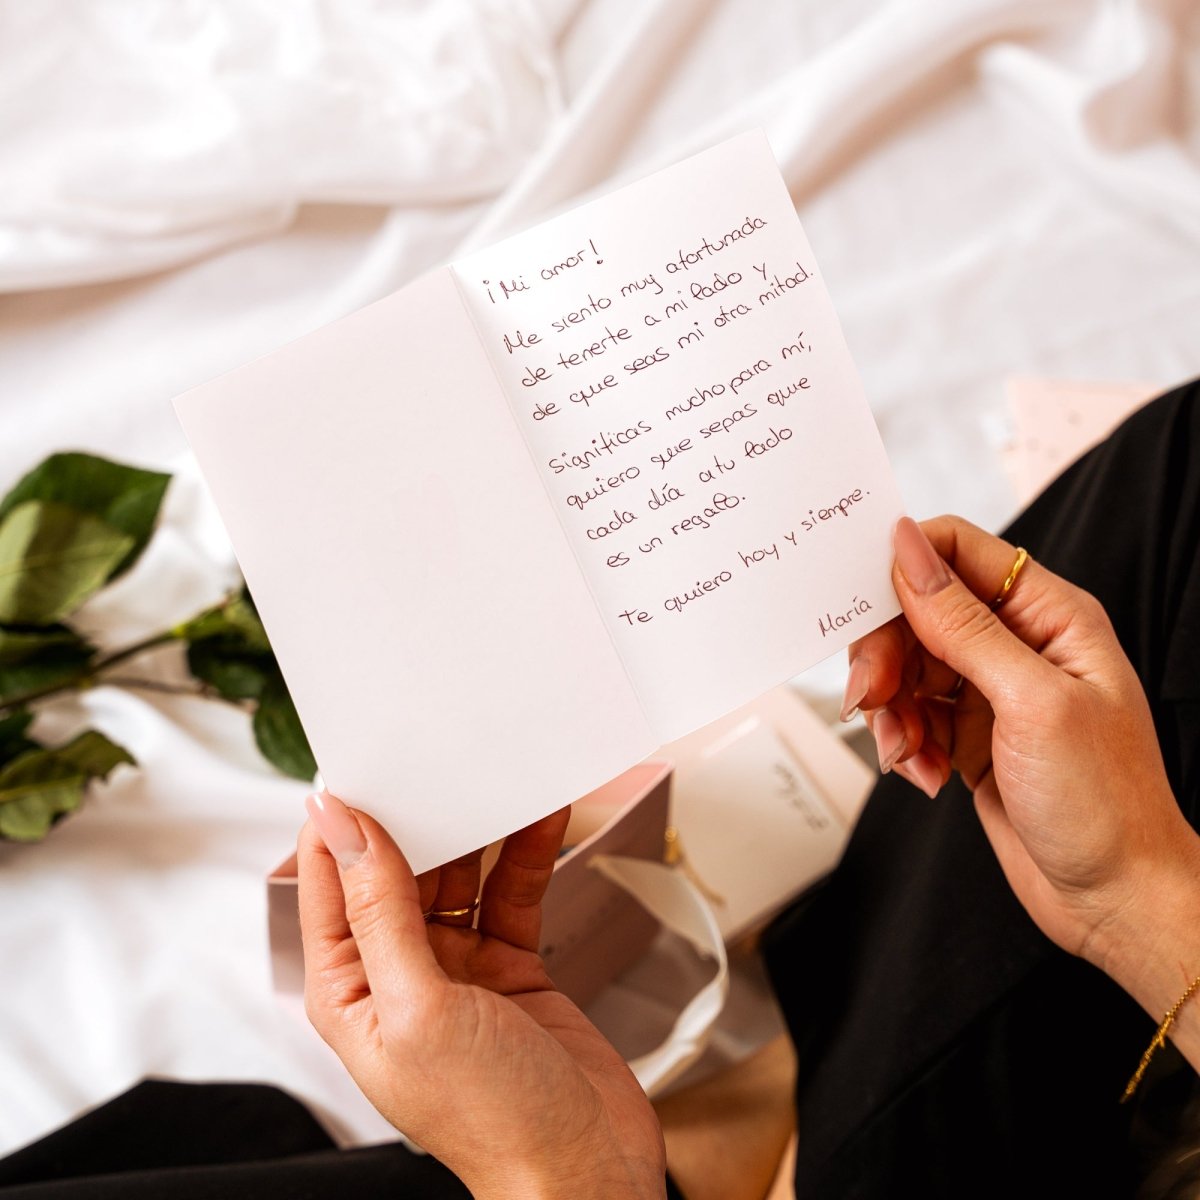 ¡Mi amor!
Me siento muy afortunada
de tenerte a mi lado y
de que seas mi otra mitad.
Significas mucho para mí,
quiero que sepas que
cada día a tu lado
es un regalo.
Te quiero hoy y siempre.
María